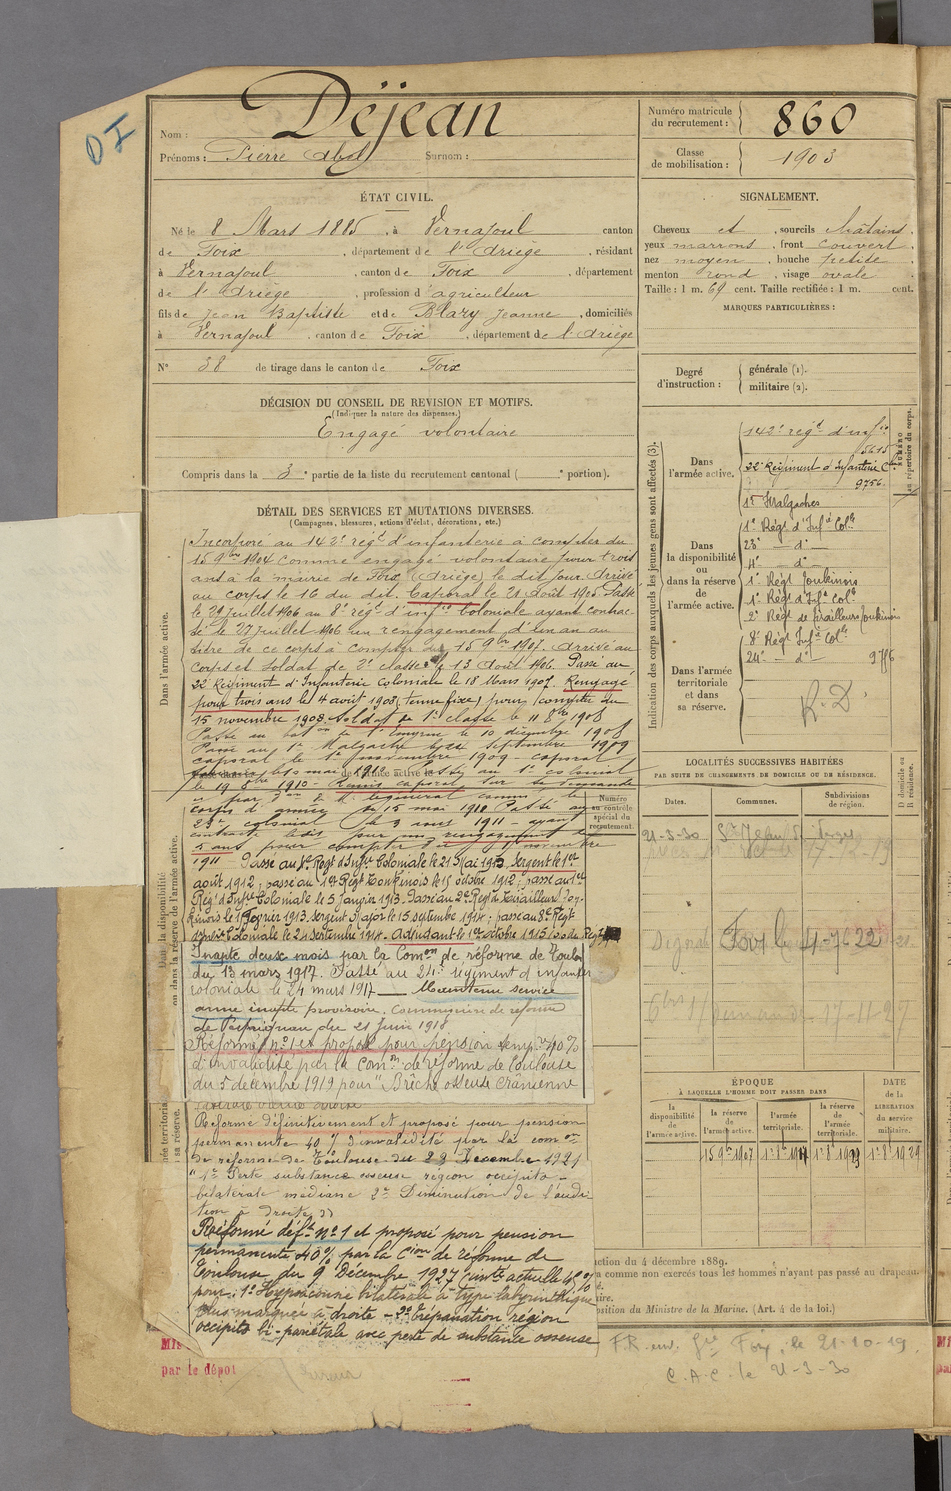 DI
Nom : Déjean
Prénoms : Pierre Abel Surnom :
Numéro matricule du recrutement : 860
Classe de mobilisation : 1903
ÉTAT CIVIL.
Né le 8 Mars 1885, à Vernajoul canton
de Foix, département de l'Ariège, résidant
à Vernajoul, canton de Foix, département
de l'Ariège, profession d'agriculteur
fils de Jean Baptiste et de Blazy Jeanne, domiciliés
à Vernajoul, canton de Foix, département de l'Ariège
N° 38 de tirage dans le canton de Foix
SIGNALEMENT.
Cheveux et, sourcils châtains,
yeux marrons, front couvert,
nez moyen, bouche petite,
menton rond, visage ovale
Taille : 1 m. 69 cent. Taille rectifiée : 1 m. cent.
MARQUES PARTICULIÈRES :
Degré d'instruction :
générale (1).
militaire (2).
DÉCISION DU CONSEIL DE REVISION ET MOTIFS.
(Indiquer la nature des dispenses.)
Engagé volontaire
Compris dans la 3e partie de la liste du recrutement cantonal ( e portion).
DÉTAIL DES SERVICES ET MUTATIONS DIVERSES.
(Campagnes, blessures, actions d'éclat, décorations, etc.)
Dans l'armée active.
Incorporé au 142e régt d'infanterie à compter du
15 9bre 1904 comme engagé volontaire pour trois
ans à la mairie de Foix (Ariège) le dit jour. Arrivé
au corps le 16 du dit. Caporal le 21 Août 1905. Passé
le 29 Juillet 1906 au 8e régt d'infie Coloniale ayant contrac-
té le 27 Juillet 1906 un rengagement d'un an au
titre de ce corps à compter du 15 9bre 1907. Arrivé au
corps et soldat de 2e classe le 13 Août 1906. Passé au
22e Régiment d'Infanterie Coloniale le 18 Mars 1907. Rengagé
pour trois ans le 4 août 1908 pour compter du
15 novembre 1908. Soldat de 1e classe le 11 8bre 1908
le 10 décembre 1908
Passé au 1e Malgache septembre 1909
caporal le 1er novembre 1909
le 19 8bre 1910 - Remis caporal sur sa demande
corps d'armée 15 mai 1910 Passé au
23e colonial le 3 août 1911 - ayant
contracté pour un rengagement de
5 ans pour compter du novembre
1911. Passé au Régt d'Infie Coloniale le 21 Mai 1912 Sergent le 1er
août 1912; passé au 1er Régt Tonkinois le 15 octobre 1912; passé au 1er
Régt d'Infie Coloniale le 5 Janvier 1913. Passé au 2e Régt de Tirailleurs Ton-
kinois le 1 Février 1913. Sergent Major le 15 septembre 1914; passé au 8e Régt
d'Infie Coloniale le 24 Septembre 1914. Adjudant le 1er octobre 1915
Inapte deux mois par la Comon de réforme de Toulon
du 13 mars 1917. Passé au 24e régiment d'infanterie
coloniale le 24 mars 1917 — Maintenu service
armé inapte provisoire. Commission de réforme
de Perpignan du 21 Juin 1918
Réformé no 1 et proposé pour pension temp 40 %
d'invalidité par la Comon de réforme de Toulouse
du 5 décembre 1919 pour "Brèche osseuse crânienne
Réformé définitivement et proposé pour pension
permanente 40 % d'invalidité par la comon
de réforme de Toulouse du 23 Décembre 1921
"1° Perte substance osseuse région occipito-
bilatérale médiane 2° Diminution de l'audi-
tion à droite"
Réformé défit no 1 et proposé pour pension
permanente 40 % par la Cion de réforme de
Toulouse du 9 Décembre 1927
pour : 1° Hypoacousie bilatérale à type labyrinthique
plus marquée à droite - 2° trépanation région
occipito bi-pariétale avec perte de substance osseuse
Numéro au contrôle spécial du recrutement.
Indication des corps auxquels les jeunes gens sont affectés (3).
Dans l'armée active.
142e régt d'infie
5615
22e Régiment d'Infanterie Cle
9756
NUMÉRO au répertoire du corps.
Dans la disponibilité ou dans la réserve de l'armée active.
1r Malgaches
1e Régt d'Infie Colle
23e — do —
4e — do —
1e Régt Tonkinois
1e Régt d'Infie Colle
2e Régt de Tirailleurs Tonkinois
Dans l'armée territoriale et dans sa réserve.
8e Régt Infie Colle
24e — do — 9756
R.D
LOCALITÉS SUCCESSIVES HABITÉES
PAR SUITE DE CHANGEMENTS DE DOMICILE OU DE RÉSIDENCE.
Dates. Communes. Subdivisions de région.
D domicile ou R résidence.
21-3-30
Foix le 4-7-22
ÉPOQUE
À LAQUELLE L'HOMME DOIT PASSER DANS
la disponibilité de l'armée active. la réserve de l'armée active. l'armée territoriale. la réserve de l'armée territoriale.
DATE de la LIBÉRATION du service militaire.
15 9bre 1907
1er 8bre 1929
ction du 4 décembre 1889.
comme non exercés tous les hommes n'ayant pas passé au drapeau
sition du Ministre de la Marine. (Art. 4 de la loi.)
F.R. Foix, le 21-10-19
C.A.C. le 21-3-30
par le dépôt